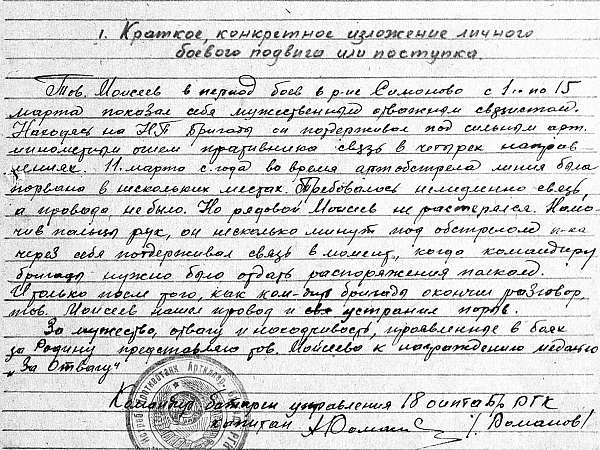 1. Краткое, конкретное изложение личного
боевого подвига или поступка.
Тов. Моисеев в период боев в р-не Симоново с 1 по 15
марта показал себя мужественным отважным связистом.
Находясь на НП бригады он поддерживал под сильным арт.
минометным огнем противника связь в четырех направ
лениях. 11. марта с. года во время артобстрела линия была
порвана в нескольких местах. Требовалось немедленно связь,
а провода не было. Но рядовой Моисеев не растерялся. Намо-
чив пальцы рук, он несколько минут под обстрелом п-ка
через себя поддерживал связь в момент, когда командиру
бригады нужно было отдать распоряжения полкам.
И только после того, как ком- бригады окончил разговор,
тов. Моисеев нашел провод и устранил порыв.
За мужество, отвагу и находчивость, проявленные в боях
за Родину представляю тов. Моисеева к награждению медалью
„За Отвагу"
Командир батареи управления 18 оиптабр РГК
капитан /Романов/